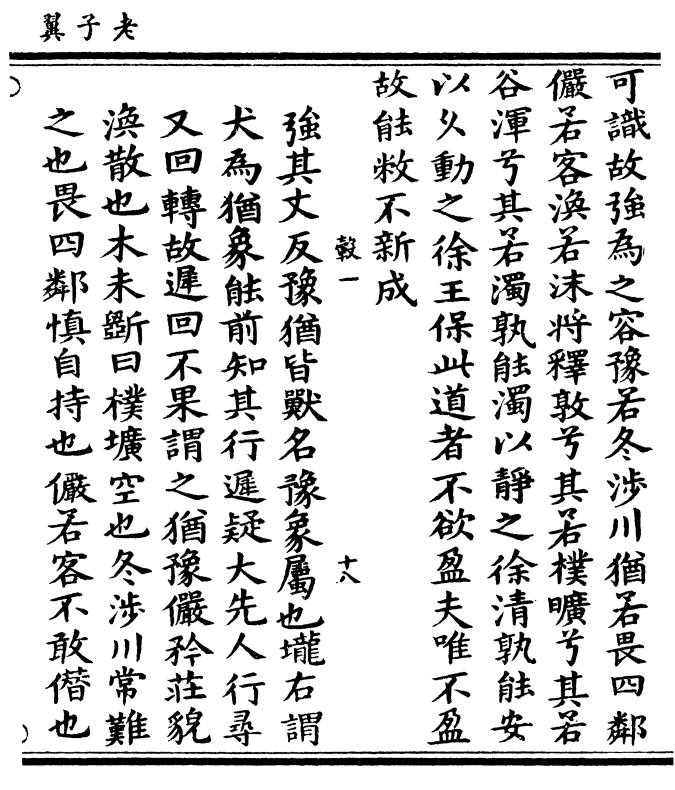 老子翼
可識故強為之容豫若冬涉川猶若畏四鄰
儼若客渙若沫將釋敦兮其若樸曠兮其若
谷渾兮其若濁孰能濁以靜之徐清孰能安
以久動之徐王保此道者不欲盈夫唯不盈
故能敝不新成
轂一 十八
強其丈反豫猶皆獸名豫象屬也壠右謂
犬為猶象能前知其行遲疑大先人行尋
又回轉故遲回不果謂之猶豫儼矜莊貌
渙散也木未斵曰樸壙空也冬涉川常難
之也畏四鄰慎自持也儼若客不敢僭也